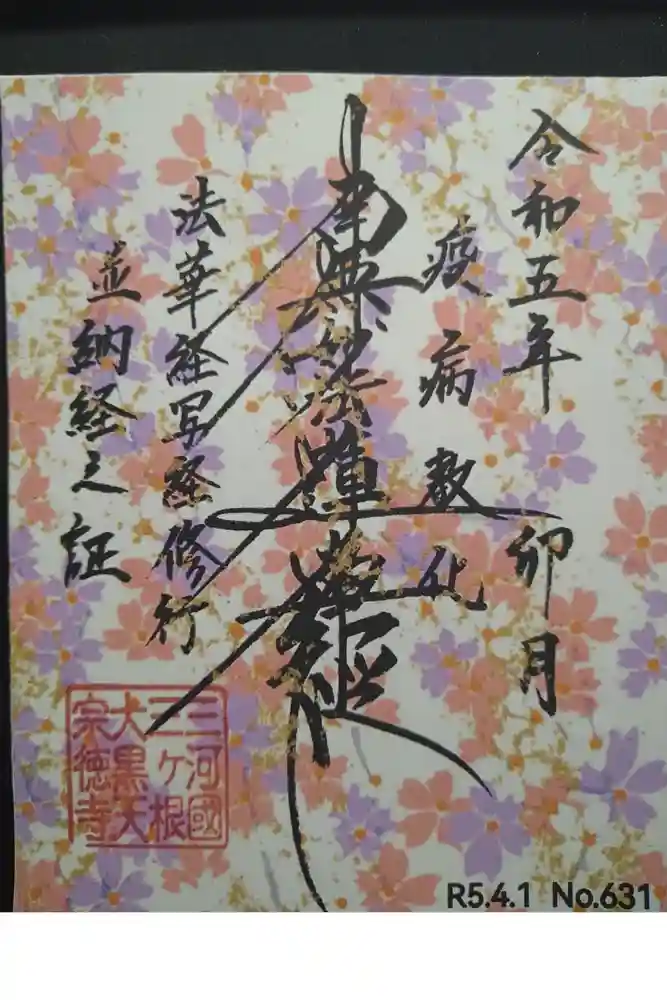 令和五年 卯月
疫病散化
南無妙法蓮華経
法華経写経修行
並納経之証
三河國
三ヶ根
大黒天
宗徳寺
R5.4.1 No.631